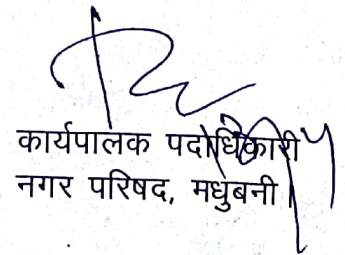 कार्यपालक पदाधिकारी
नगर परिषद, मधुबनी